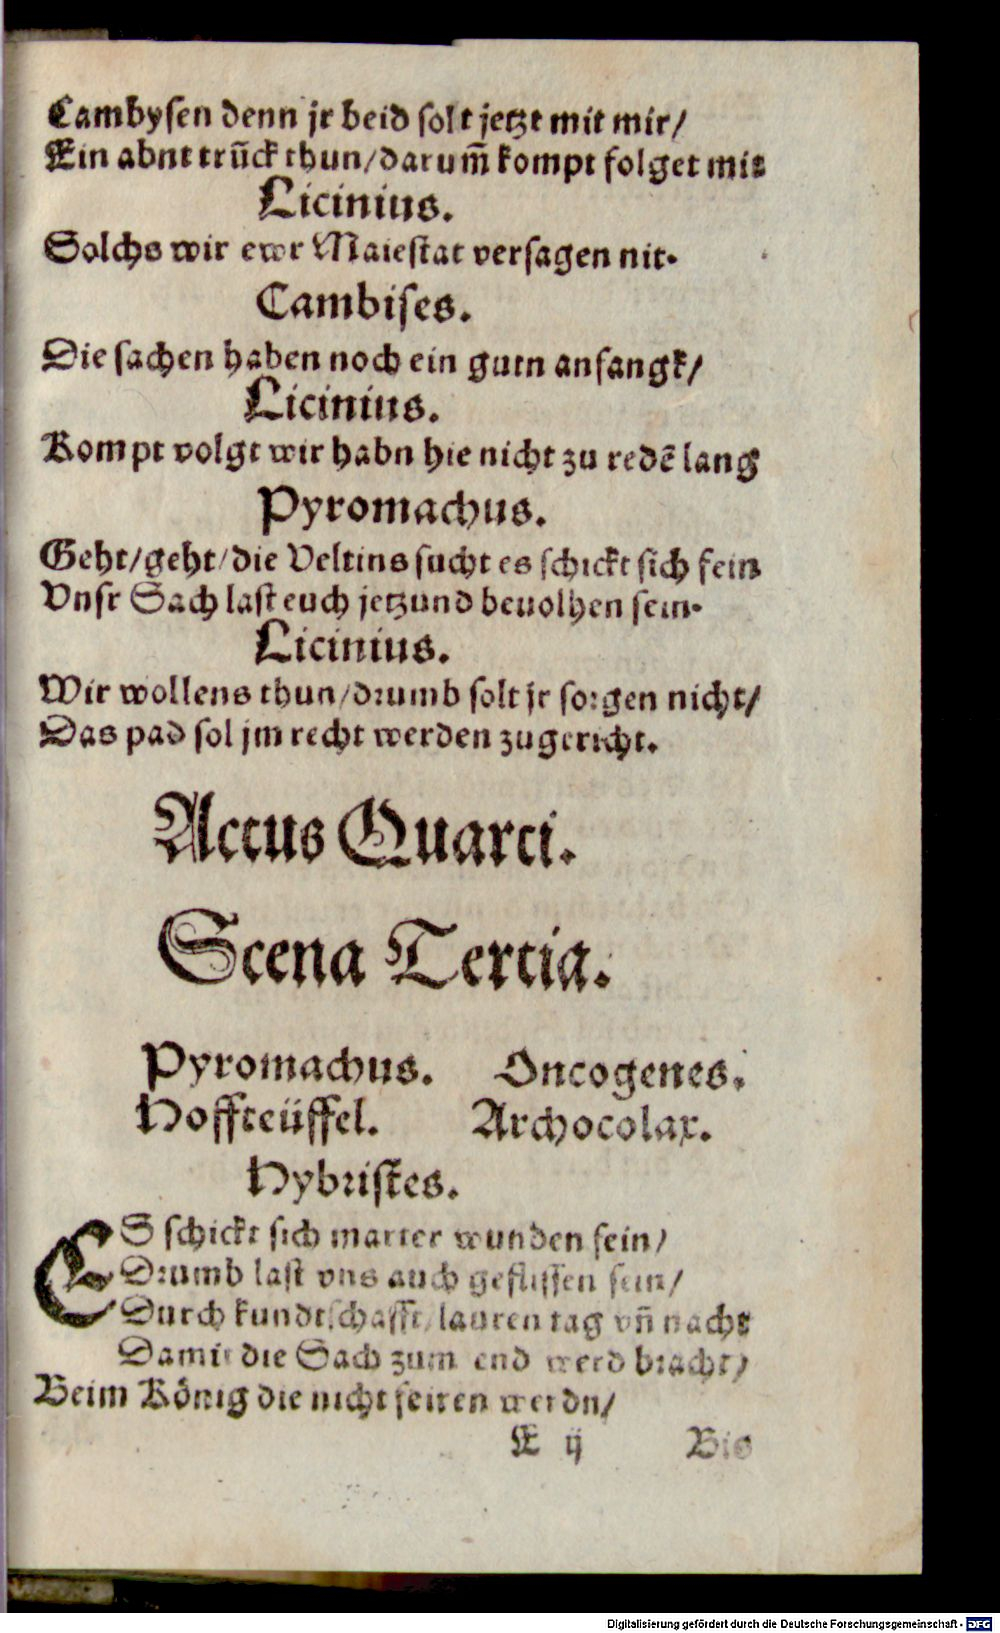 Cambysen denn jr beid solt jetzt mit mir/
Ein abnttrũck thun/darum̃ kompt folget mit
Licinius.
Solchs wir ewr Maiestat versagen nit.
Cambises.
Die sachen haben noch ein gutn anfangk/
Licinius.
Kompt volgt wir habn hie nicht zu redẽ lang
Pyromachus.
Geht/geht/die Veltins sucht es schickt sich fein
Vnsr Sach last euch jetzund beuolhen sein.
Licinius.
Wir wollens thun/drumb solt jr sorgen nicht/
Das pad sol jm recht werden zugericht.
Actus Quarti.
Scena Tertia.
Pyromachus. Oncogenes.
Hoffteüffel. Archocolax.
Hybristes.
ES schickt sich marter wunden fein/
Drumb last vns auch geflissen sein/
Durch kundtschafft/lauren tag vñ nacht
Damit die Sach zum end werd bracht/
Beim König die nicht feiren werdn/
E ij Bis
Digitalisierung gefördert durch die Deutsche Forschungsgemeinschaft - DFG